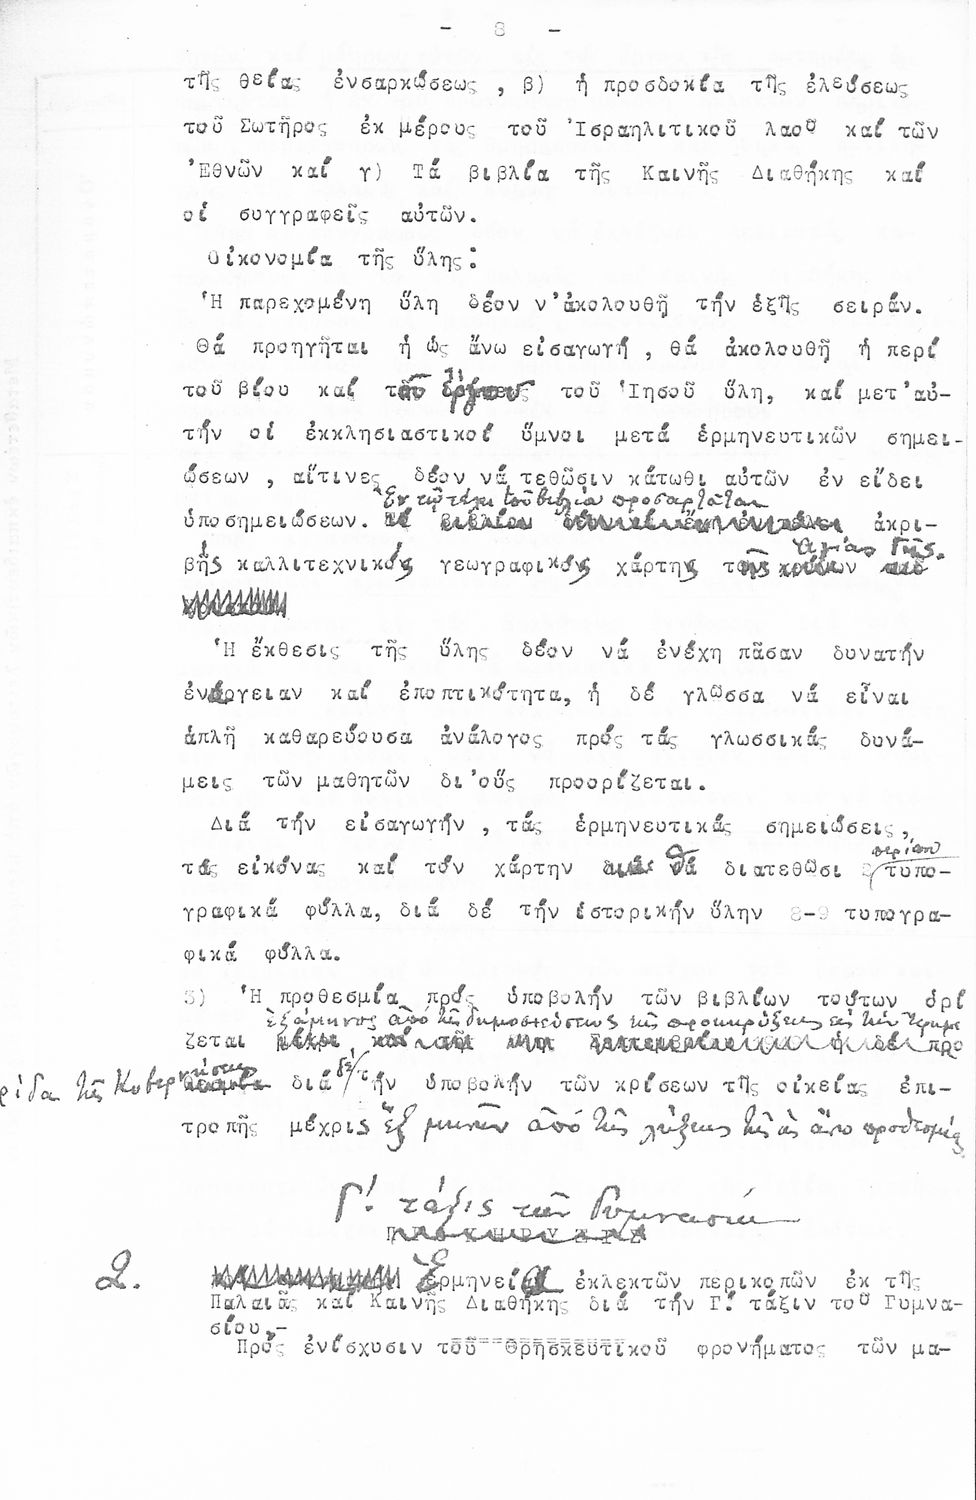 - 8 -
τῆς θείας ἐνσαρκώσεως , β) ἡ προσδοκία τῆς ἐλεύσεως
τοῦ Σωτῆρος ἐκ μέρους τοῦ Ἰσραηλιτικοῦ λαοῦ καί τῶν
Ἐθνῶν καί γ) Τά βιβλία τῆς Καινῆς Διαθήκης καί
οἱ συγγραφεῖς αὐτῶν.
Οἰκονομία τῆς ὕλης:
Ἡ παρεχομένη ὕλη δέον ν' ἀκολουθῇ τήν ἑξῆς σειράν.
Θά προηγῆται ἡ ὡς ἄνω εἰσαγωγή , θά ἀκολουθῇ ἡ περί
τοῦ βίου καί τοῦ ἔργου τοῦ Ἰησοῦ ὕλη, καί μετ' αὐ-
τήν οἱ ἐκκλησιαστικοί ὕμνοι μετά ἑρμηνευτικῶν σημει-
ώσεων , αἵτινες δέον νά τεθῶσιν κάτωθι αὐτῶν ἐν εἴδει
Ἐν τῷ τέλει τοῦ βιβλίου προσαρτᾶται
ὑποσημειώσεων. ἀκρι-
Ἁγίας Γῆς.
βής καλλιτεχνικός γεωγραφικός χάρτης τῆς
Ἡ ἔκθεσις τῆς ὕλης δέον νά ἐνέχη πᾶσαν δυνατήν
ἐνάργειαν καί ἐποπτικότητα, ἡ δέ γλῶσσα νά εἶναι
ἁπλῆ καθαρεύουσα ἀνάλογος πρός τάς γλωσσικάς δυνά-
μεις τῶν μαθητῶν δι' οὕς προορίζεται.
Διά τήν εἰσαγωγήν , τάς ἑρμηνευτικάς σημειώσεις,
περίπου
τάς εἰκόνας καί τόν χάρτην θά διατεθῶσι 2 τυπο-
γραφικά φύλλα, διά δέ τήν ἱστορικήν ὕλην 8-9 τυπογρα-
φικά φύλλα.
3) Ἡ προθεσμία πρός ὑποβολήν τῶν βιβλίων τούτων ὁρί
ἑξάμηνος ἀπό τῆς δημοσιεύσεως τῆς προκηρύξεως εἰς τήν Ἐφημε
ζεται ἡ δέ προ
ρίδα τῆς Κυβερνήσεως διά δέ τήν ὑποβολήν τῶν κρίσεων τῆς οἰκείας ἐπι-
τροπῆς μέχρις ἕξ μηνῶν ἀπό τῆς λήξεως τῆς ὡς ἄνω προθεσμίας
Γ'. τάξις τῶν Γυμνασίων
2. Ἑρμηνεία ἐκλεκτῶν περικοπῶν ἐκ τῆς
Παλαιᾶς καί Καινῆς Διαθήκης διά τήν Γ'. τάξιν τοῦ Γυμνα-
σίου,-
Πρός ἐνίσχυσιν τοῦ Θρησκευτικοῦ φρονήματος τῶν μα-